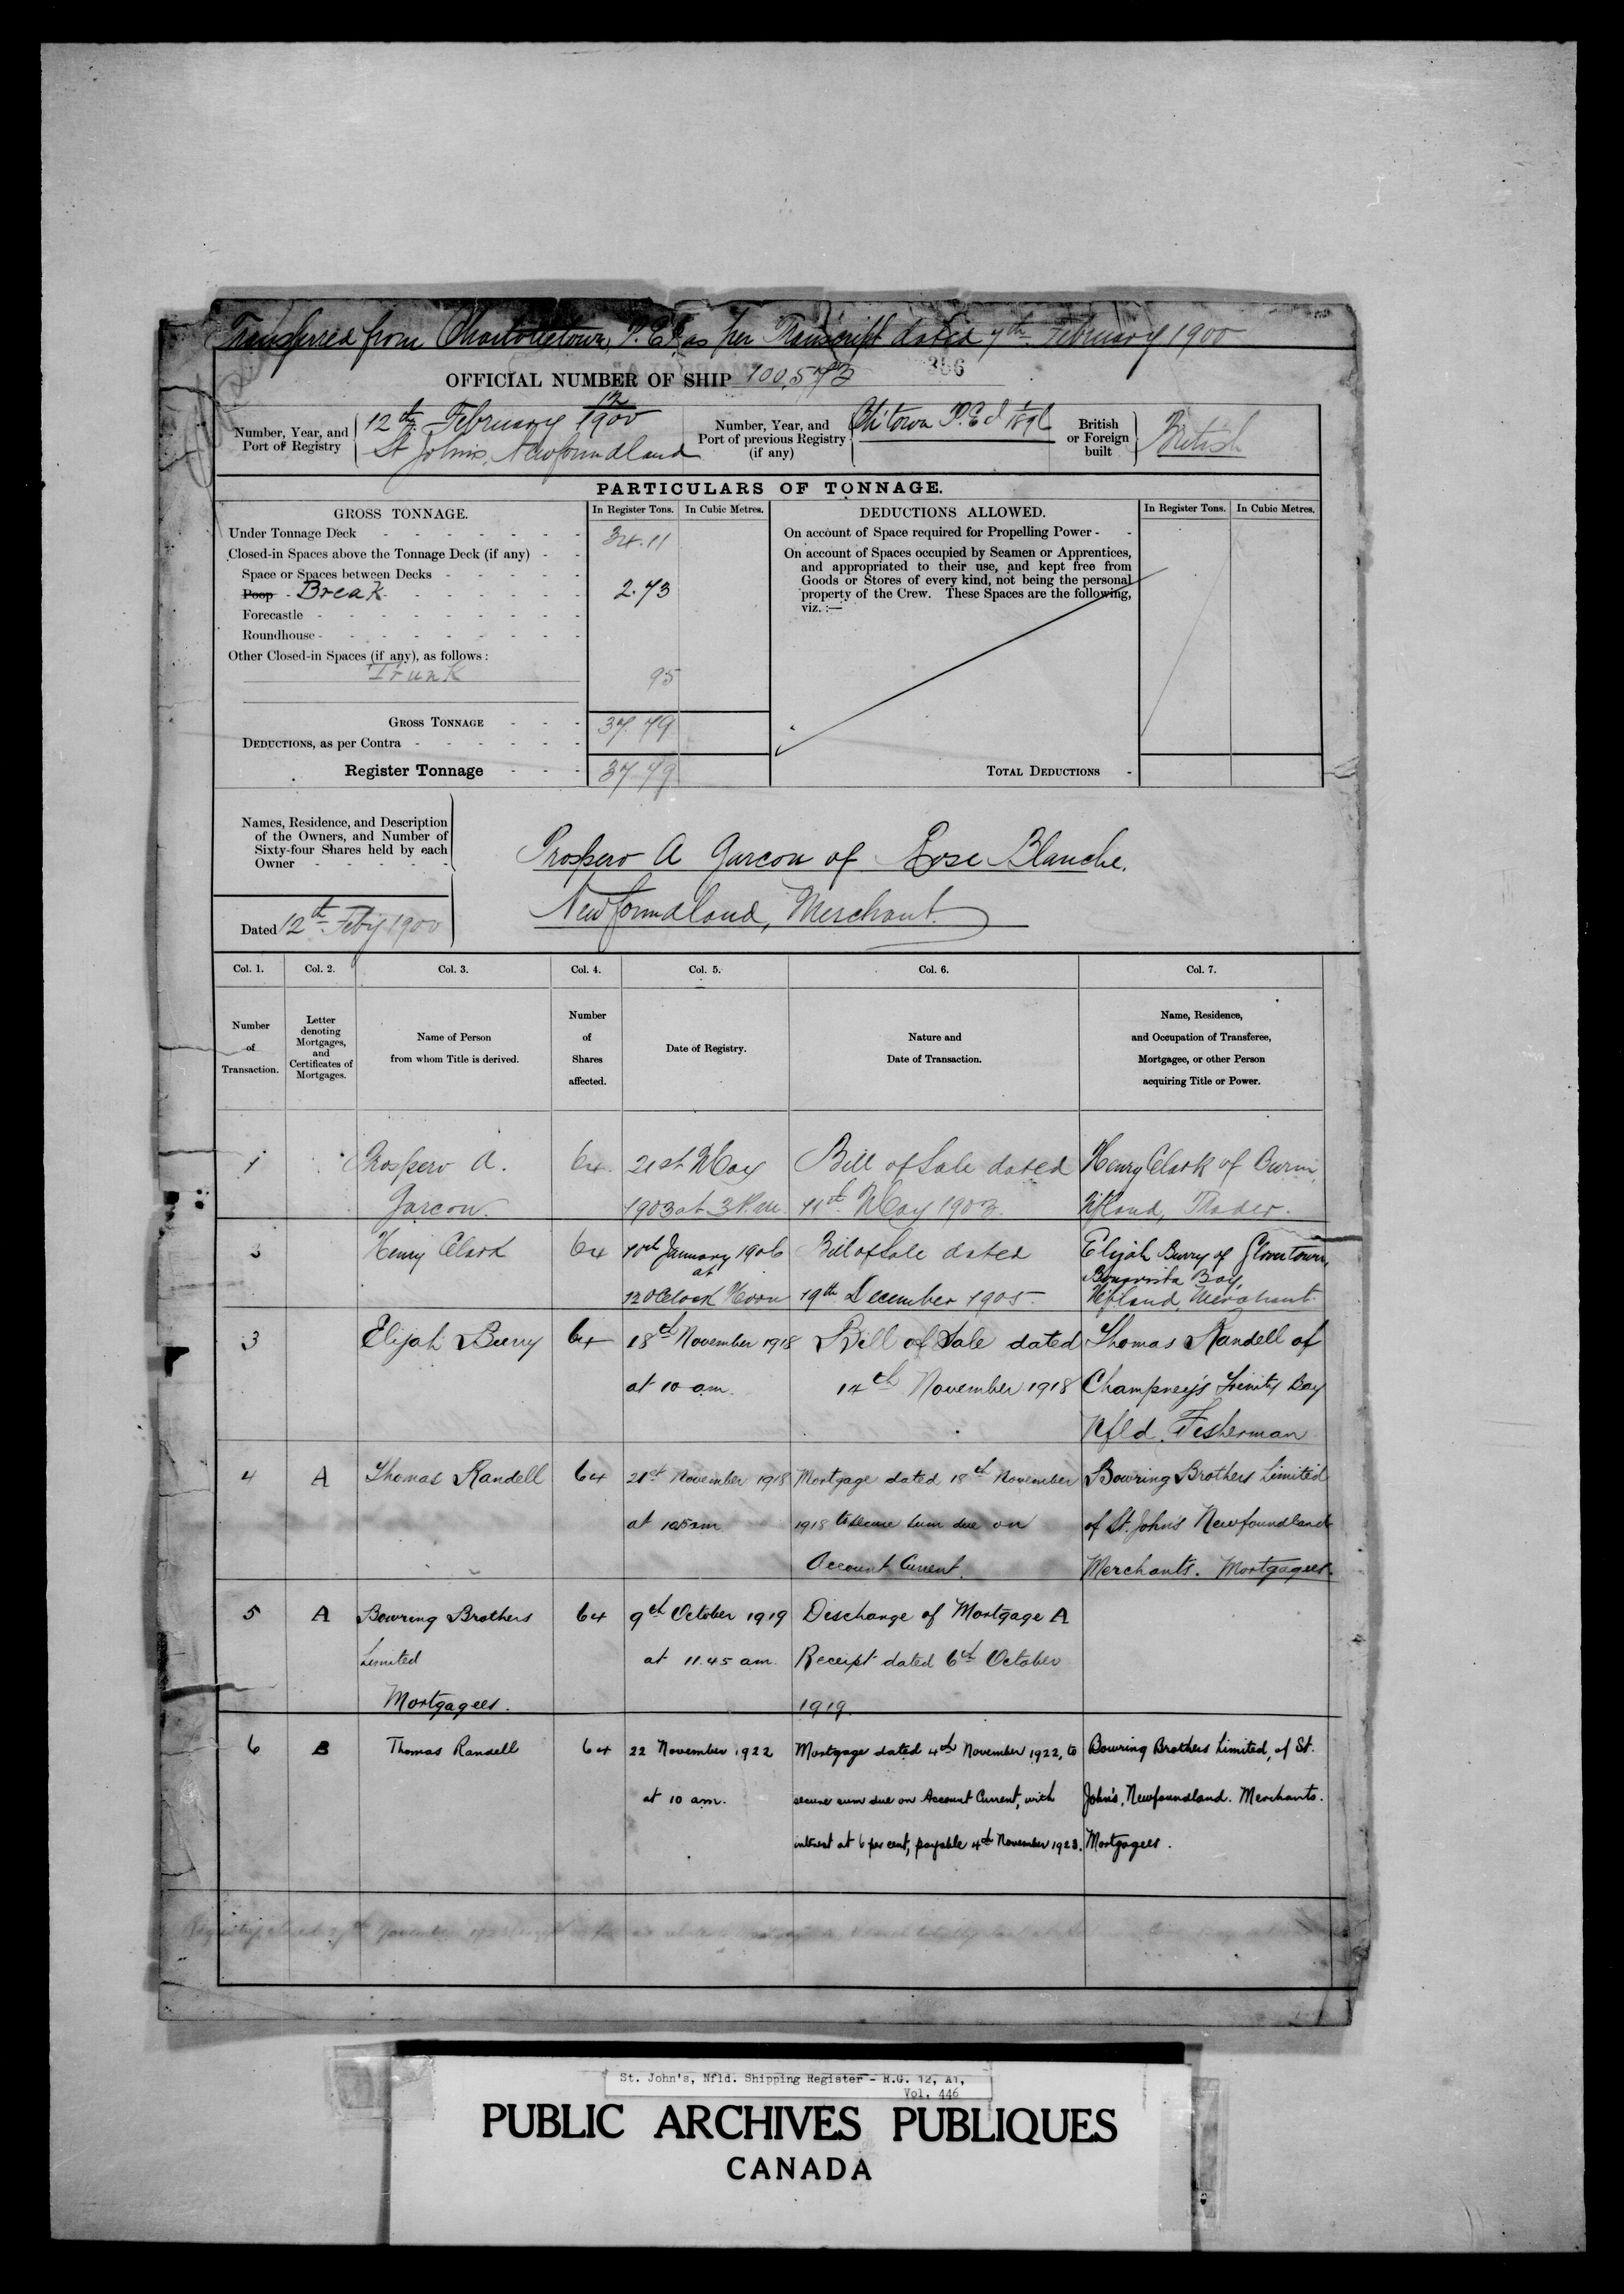 Transferred from Charlottetown, P.E.I. as per Transcript dated 7th February 1900
OFFICIAL NUMBER OF SHIP 100,573
Number, Year, and
Port of Registry
12th February 1900
St John's, Newfoundland
Number, Year, and
Port of previous Registry
(if any)
Ch'town P.E.I
British
or Foreign
built
British
PARTICULARS OF TONNAGE.
GROSS TONNAGE.
In Register Tons.
In Cubic Metres.
DEDUCTIONS ALLOWED.
In Register Tons.
In Cubic Metres.
Under Tonnage Deck 34.11
Closed-in Spaces above the Tonnage Deck (if any)
Space or Spaces between Decks
Poop Break 2.73
Forecastle
Roundhouse
Other Closed-in Spaces (if any), as follows:
Trunk 95
GROSS TONNAGE 37.79
DEDUCTIONS, as per Contra
Register Tonnage 37.79
On account of Space required for Propelling Power
On account of Spaces occupied by Seamen or Apprentices,
and appropriated to their use, and kept free from
Goods or Stores of every kind, not being the personal
property of the Crew. These Spaces are the following,
viz.:—
TOTAL DEDUCTIONS
Names, Residence, and Description
of the Owners, and Number of
Sixty-four Shares held by each
Owner
Dated 12th Feby 1900
Prospero A Garcon of Rose Blanche,
Newfoundland, Merchant.
Col. 1.
Col. 2.
Col. 3.
Col. 4.
Col. 5.
Col. 6.
Col. 7.
Number
of
Transaction.
Letter
denoting
Mortgages,
and
Certificates of
Mortgages.
Name of Person
from whom Title is derived.
Number
of
Shares
affected.
Date of Registry.
Nature and
Date of Transaction.
Name, Residence,
and Occupation of Transferee,
Mortgagee, or other Person
acquiring Title or Power.
1 Prospero A. 64 21st May Bill of Sale dated Henry Clark of Burin,
Garcon. 1903 at 3 P.m. 11th May 1903. Nfland, Trader.
Henry Clark 64 10th January 1906 Bill of Sale dated Elijah Burry of Glovertown,
at Bonavista Bay,
12 OClock Noon 19th December 1905 Nfland, Merchant.
3 Elijah Burry 64 18th November 1918 Bill of Sale dated Thomas Randell of
at 10 am. 14th November 1918 Champney's Trinity Bay
Nfld. Fisherman
4 A Thomas Randell 64 21st November 1918 Mortgage dated 18th November Bowring Brothers Limited
at am 1918 to secure sum due on of St. John's Newfoundland
Account Current. Merchants. Mortgagees.
5 A Bowring Brothers 64 9th October 1919 Discharge of Mortgage A
Limited at 11.45 am. Receipt dated 6th October
Mortgagees. 1919.
6 B Thomas Randell 64 22 November 1922 Mortgage dated 4th November 1922, to Bowring Brothers Limited, of St.
at 10 am. secure sum due on Account Current, with John's, Newfoundland. Merchants.
interest at 6 per cent, payable 4th November 1923. Mortgagees.
St. John's, Nfld. Shipping Register - R.G. 12, A1,
Vol. 446
PUBLIC ARCHIVES PUBLIQUES
CANADA